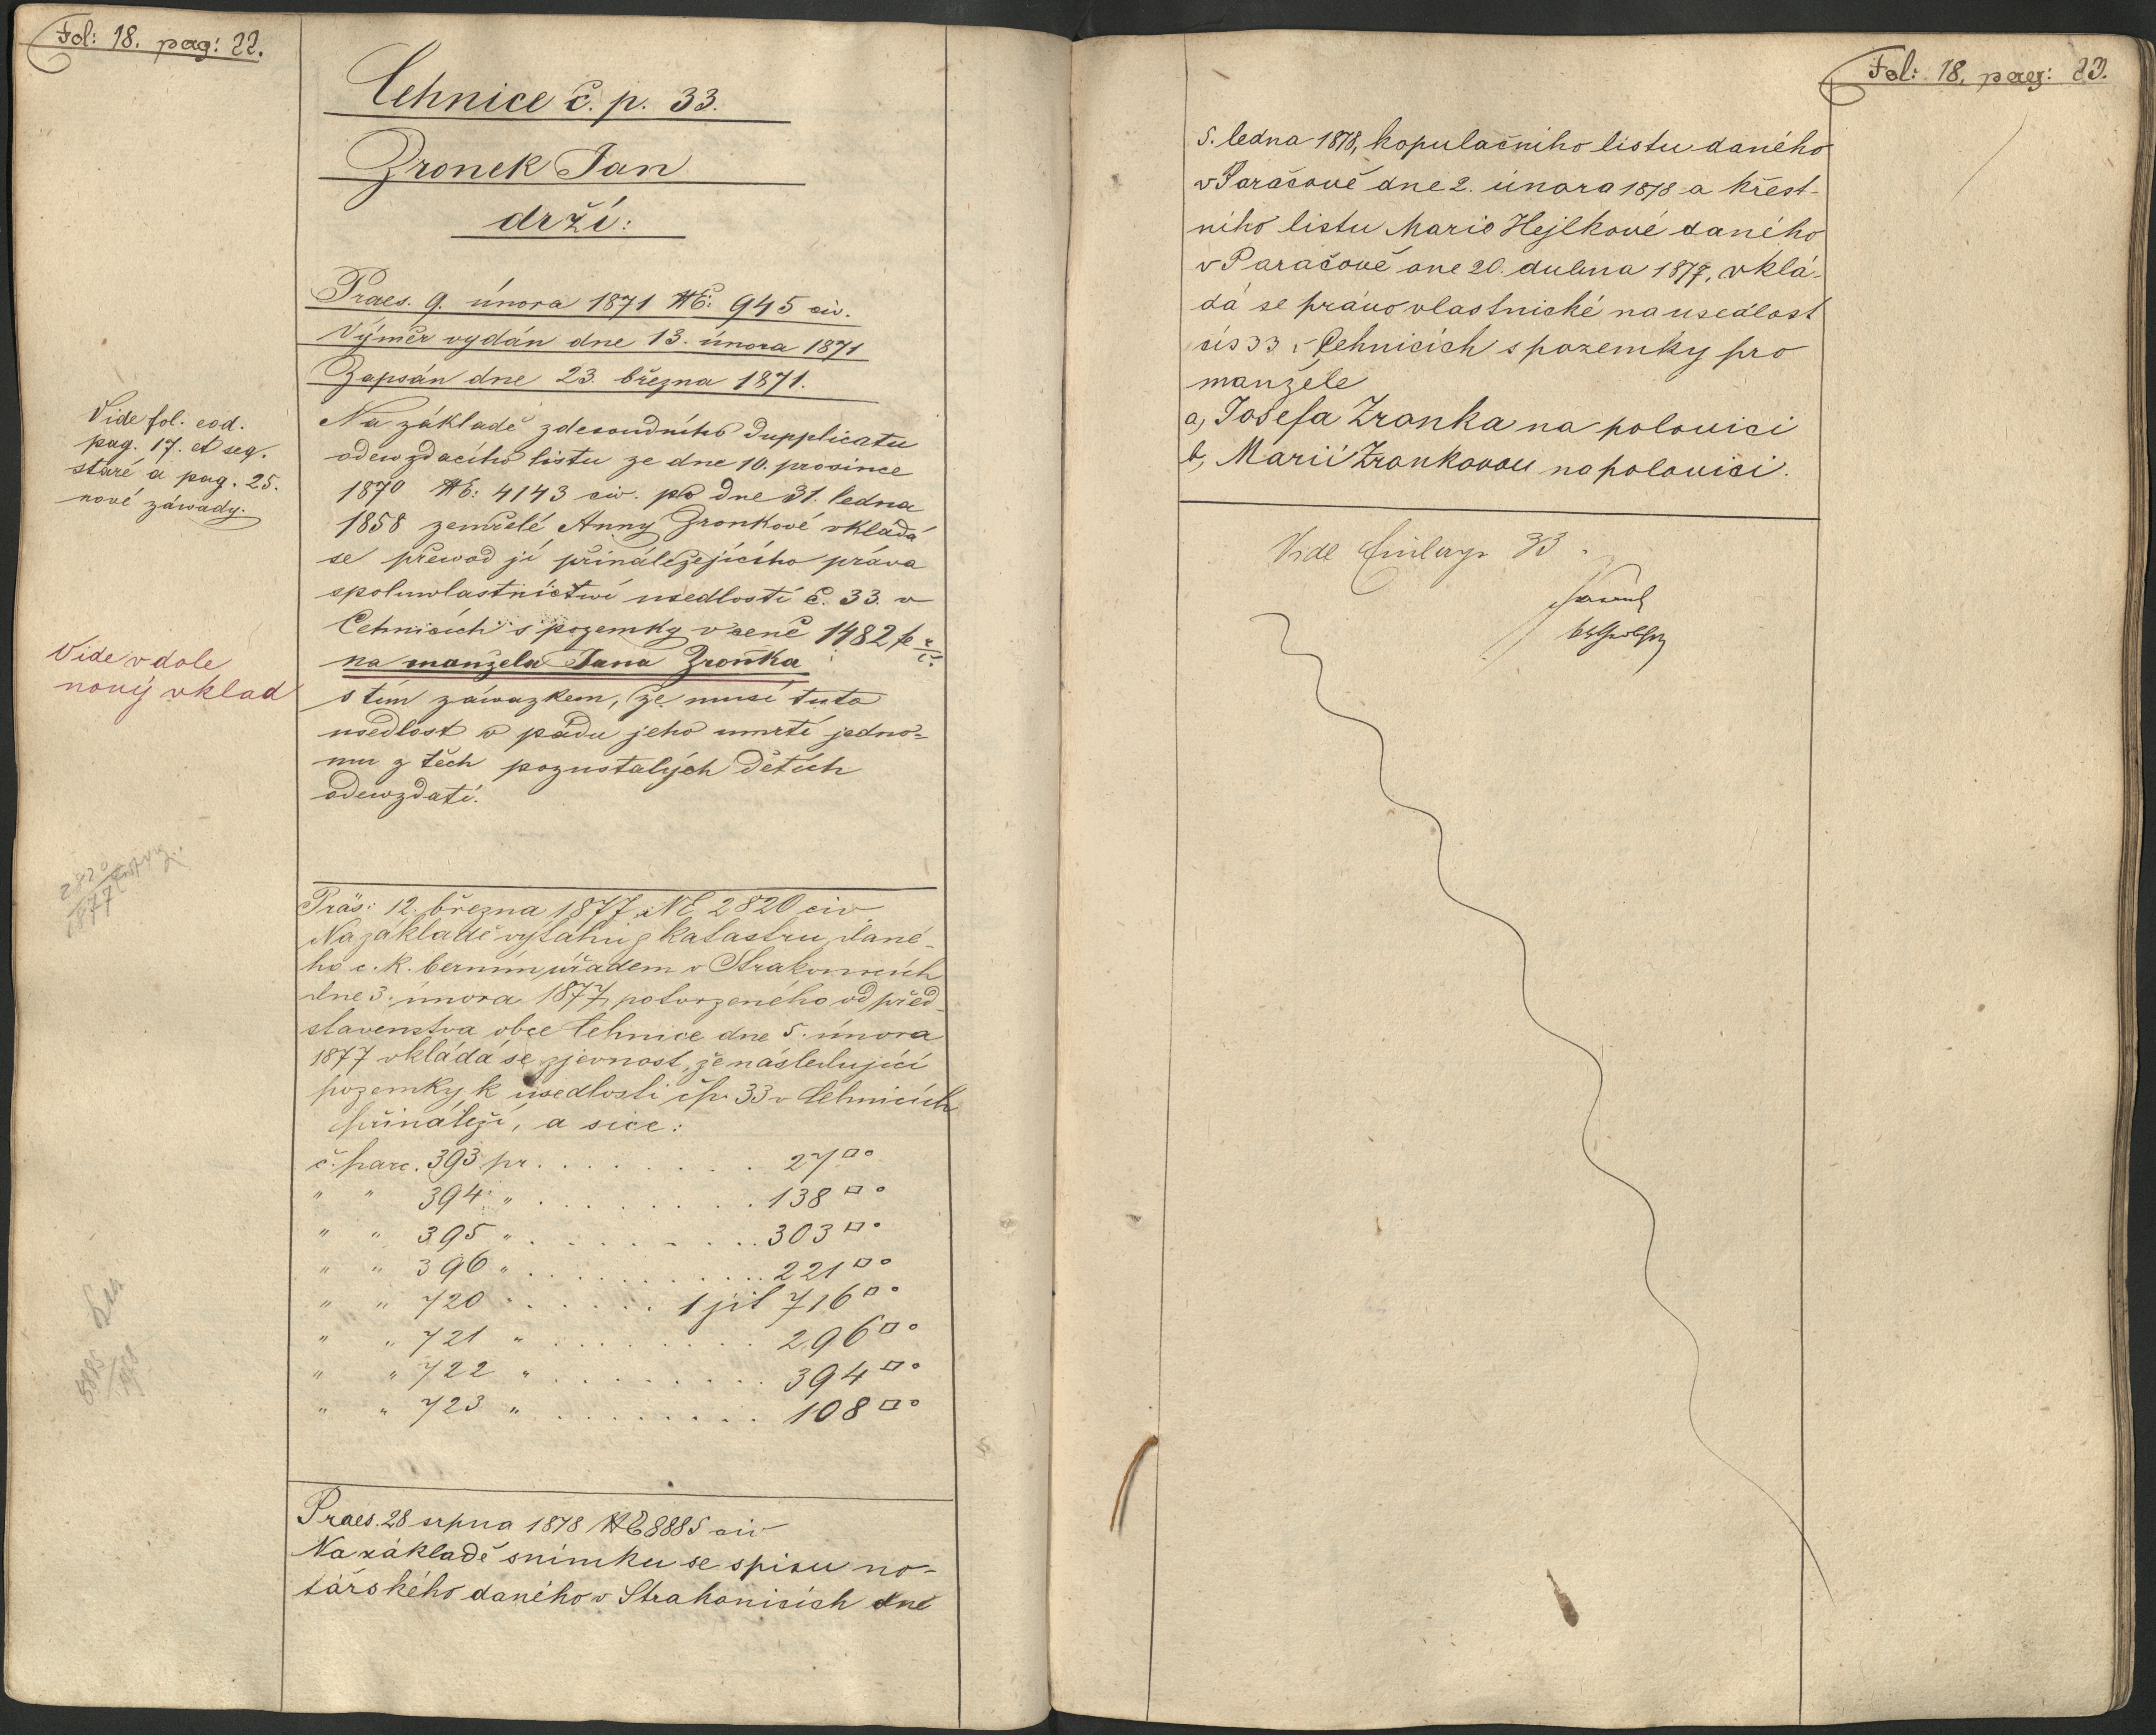 Fol: 18. pag: 22.
Cehnice č. p. 33.
Zronek Jan
drží:
Praes. 9. února 1871 NE: 945 civ.
Výměr vydán dne 13. února 1871
Zapsán dne 23. března 1871.
Vide fol. eod.
pag. 17. et seq.
staré a pag. 25.
nové záwady.
Na základě zdesoudního Dupplicatu
odewzdacího listu ze dne 10. prosince
1870 NE: 4143 civ. po dne 31. ledna
1858 zemřelé Anny Zronkové vkládá
se převod jí přináležejícího práva
spoluwlastnictwí usedlosti č. 33. v
Cehnicích s pozemky v ceně 1482 fr
na manžela Jana Zroňka
Vide v dole
nový vklad
s tím záwazkem, že musí tuto
usedlost w pádu jeho umrtí jedno-
mu z těch pozustalých dětích
odewzdati.
2820
1877
Präs: 12. března 1877 NE 2820 civ
Na základě výtahu z katastru, dané-
ho c. k. berním úřadem v Strakonicích
dne 3. února 1877, potvrzeného od před-
stavenstva obce Cehnice dne 5. února
1877 vkládá se zjevnost, že následující
pozemky k usedlosti čp. 33 v Cehnicích
přináleží, a sice:
č. parc. 393 pr. . . . . . . . 27□°
" " 394 " . . . . . . . . 138□°
" " 395 " . . . . . . . . 303□°
" " 396 " . . . . . . . . 221□°
" " 720 " . . . . . 1 jit 716□°
" " 721 " . . . . . . . . 296□°
" " 722 " . . . . . . . . 394□°
" " 723 " . . . . . . . . 108□°
8885
1878
Praes. 28 srpna 1878 NE 8885 civ
Na základě snímku se spisu no-
tářského daného v Strakonicích dne
Fol: 18. pag: 23.
5. ledna 1878, kopulačního listu daného
v Paračově dne 2. února 1878 a křest-
ního listu Marie Hejlkové daného
v Paračově dne 20. dubna 1877, vklá-
dá se právo vlastnické na usedlost
čís 33 v Cehnicích s pozemky pro
manžele
a, Josefa Zronka na polovici
b, Marii Zronkovou na polovici.
Vide Einlage 33